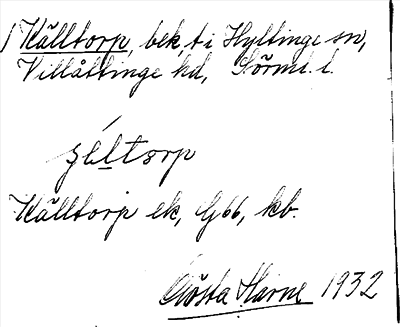 1 Källtorp, bek, t i Hyltinge sn,
Villåttinge hd, Sörml. l.
Källtorp ek, G66, kb.
Gösta Harne 1932